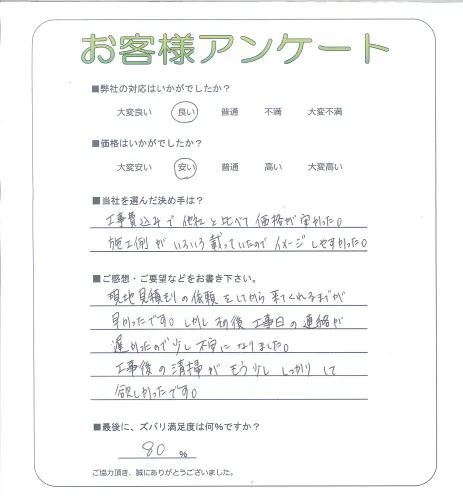 お客様アンケート
■弊社の対応はいかがでしたか?
大変良い 良い 普通 不満 大変不満
■価格はいかがでしたか?
大変安い 安い 普通 高い 大変高い
■当社を選んだ決め手は?
工事費込みで他社と比べて価格が安かった。
施工例がいろいろ載っていたのでイメージしやすかった。
■ご感想・ご要望などをお書き下さい。
現地見積もりの依頼をしてから来てくれるまでが
早かったです。しかしその後工事日の連絡が
遅かったので少し不安になりました。
工事後の清掃がもう少ししっかりして
欲しかったです。
■最後に、ズバリ満足度は何%ですか?
80 %
ご協力頂き、誠にありがとうございました。